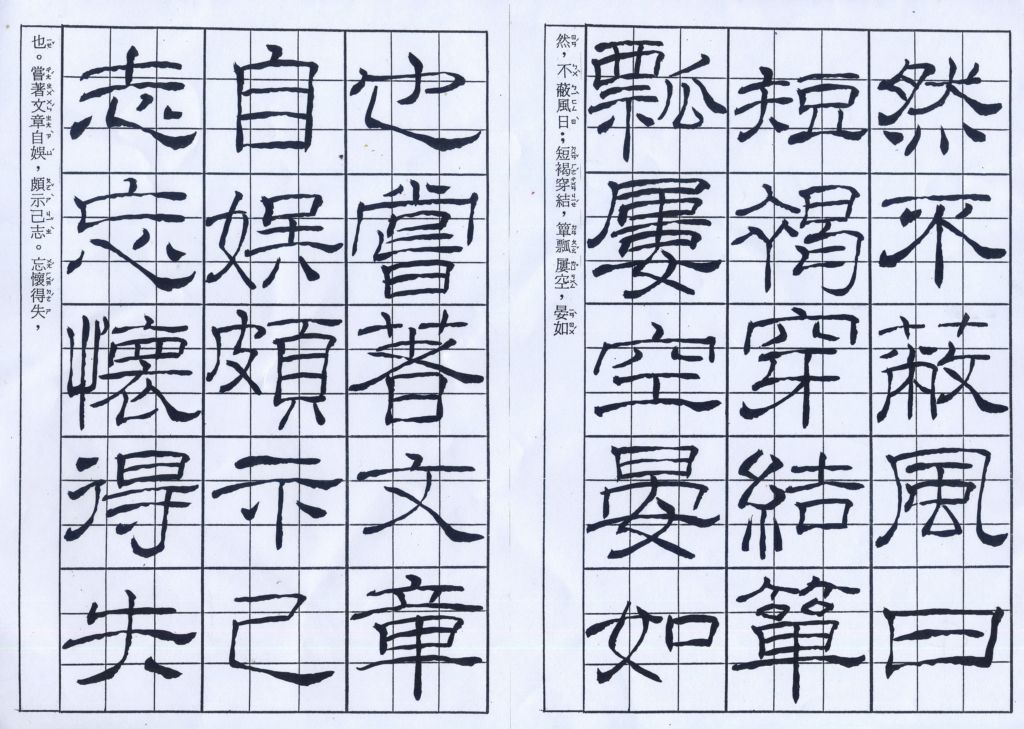 然不蔽風日
短褐穿結簞
瓢屢空晏如
然，不蔽風日；短褐穿結，簞瓢屢空，晏如
也嘗著文章
自娛頗示己
志忘懷得失
也。嘗著文章自娛，頗示己志。忘懷得失，